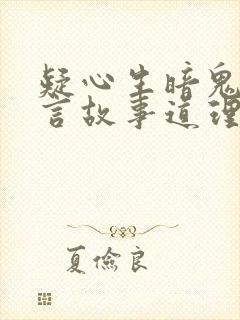 疑心生暗鬼
言故事道理
夏俭良